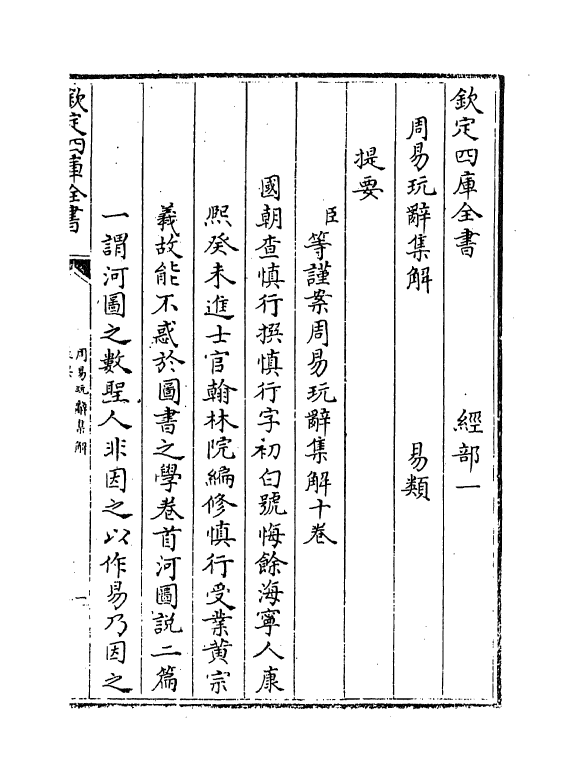 欽定四庫全書 經部一
周易玩辭集解 易類
提要
臣等謹案周易玩辭集解十卷
國朝查慎行撰慎行字初白號悔餘海寧人康
熙癸未進士官翰林院編修慎行受業黄宗
羲故能不惑於圖書之學卷首河圖説二篇
一謂河圖之數聖人非因之以作易乃因之
欽定四庫全書
周易玩辭集解
一